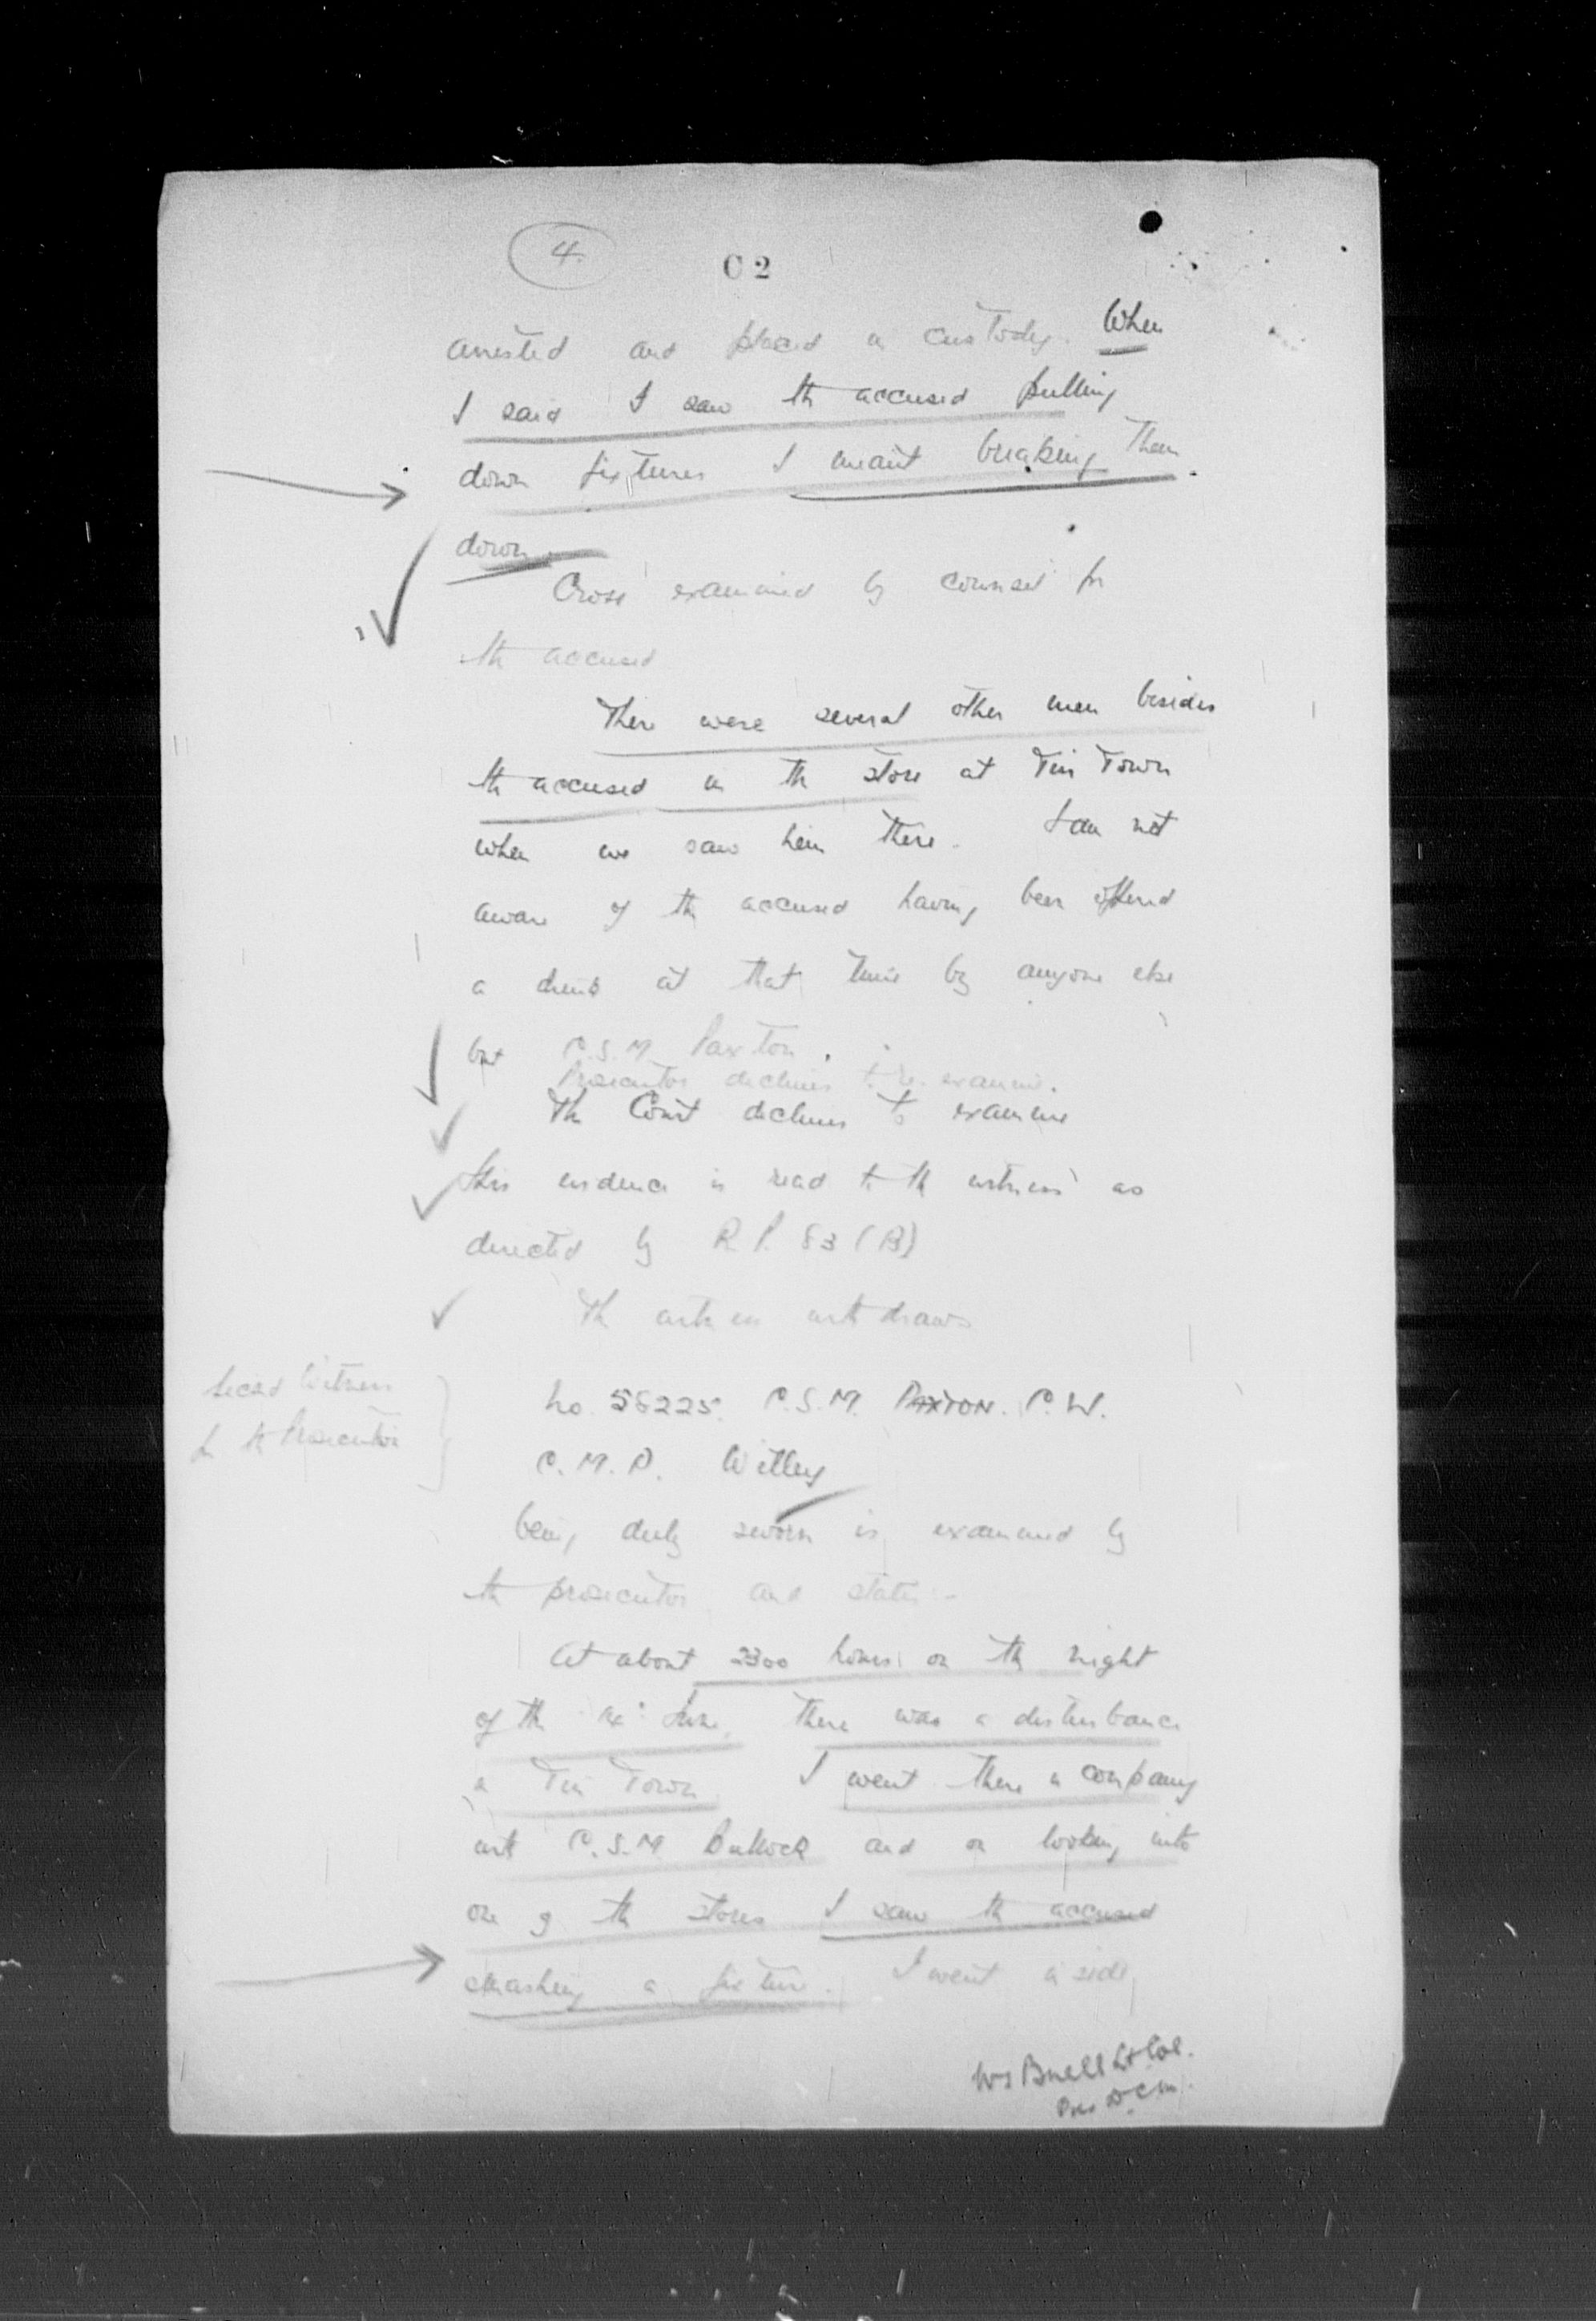 4.
C 2
arrested and placed in custody. When
I said I saw th accused pulling
down fixtures I meant breaking them
down.
Cross examined by counsel for
th accused
There were several other men besides
th accused in th store at Tin Town
when we saw him there. I am not
aware of th accused having been offered
a drink at that time by anyone else
but C.S.M. Paxton.
Prosecutor declines to re. examine.
Th Court declines to examine
His evidence is read to th witness as
directed by R.P. 83 (B)
Th witness withdraws
Second Witness
for th Prosecution
No. 58225. C.S.M. PAXTON. C.W.
C.M.P. Witley
being duly sworn is examined by
th prosecutor and states:-
At about 2300 hours on th night
of th June, there was a disturbance
in Tin Town. I went there in company
with C.S.M. Bullock and on looking into
one of th stores I saw th accused
smashing a fixture. I went inside,
Lt Col.
Pres D.C.M.